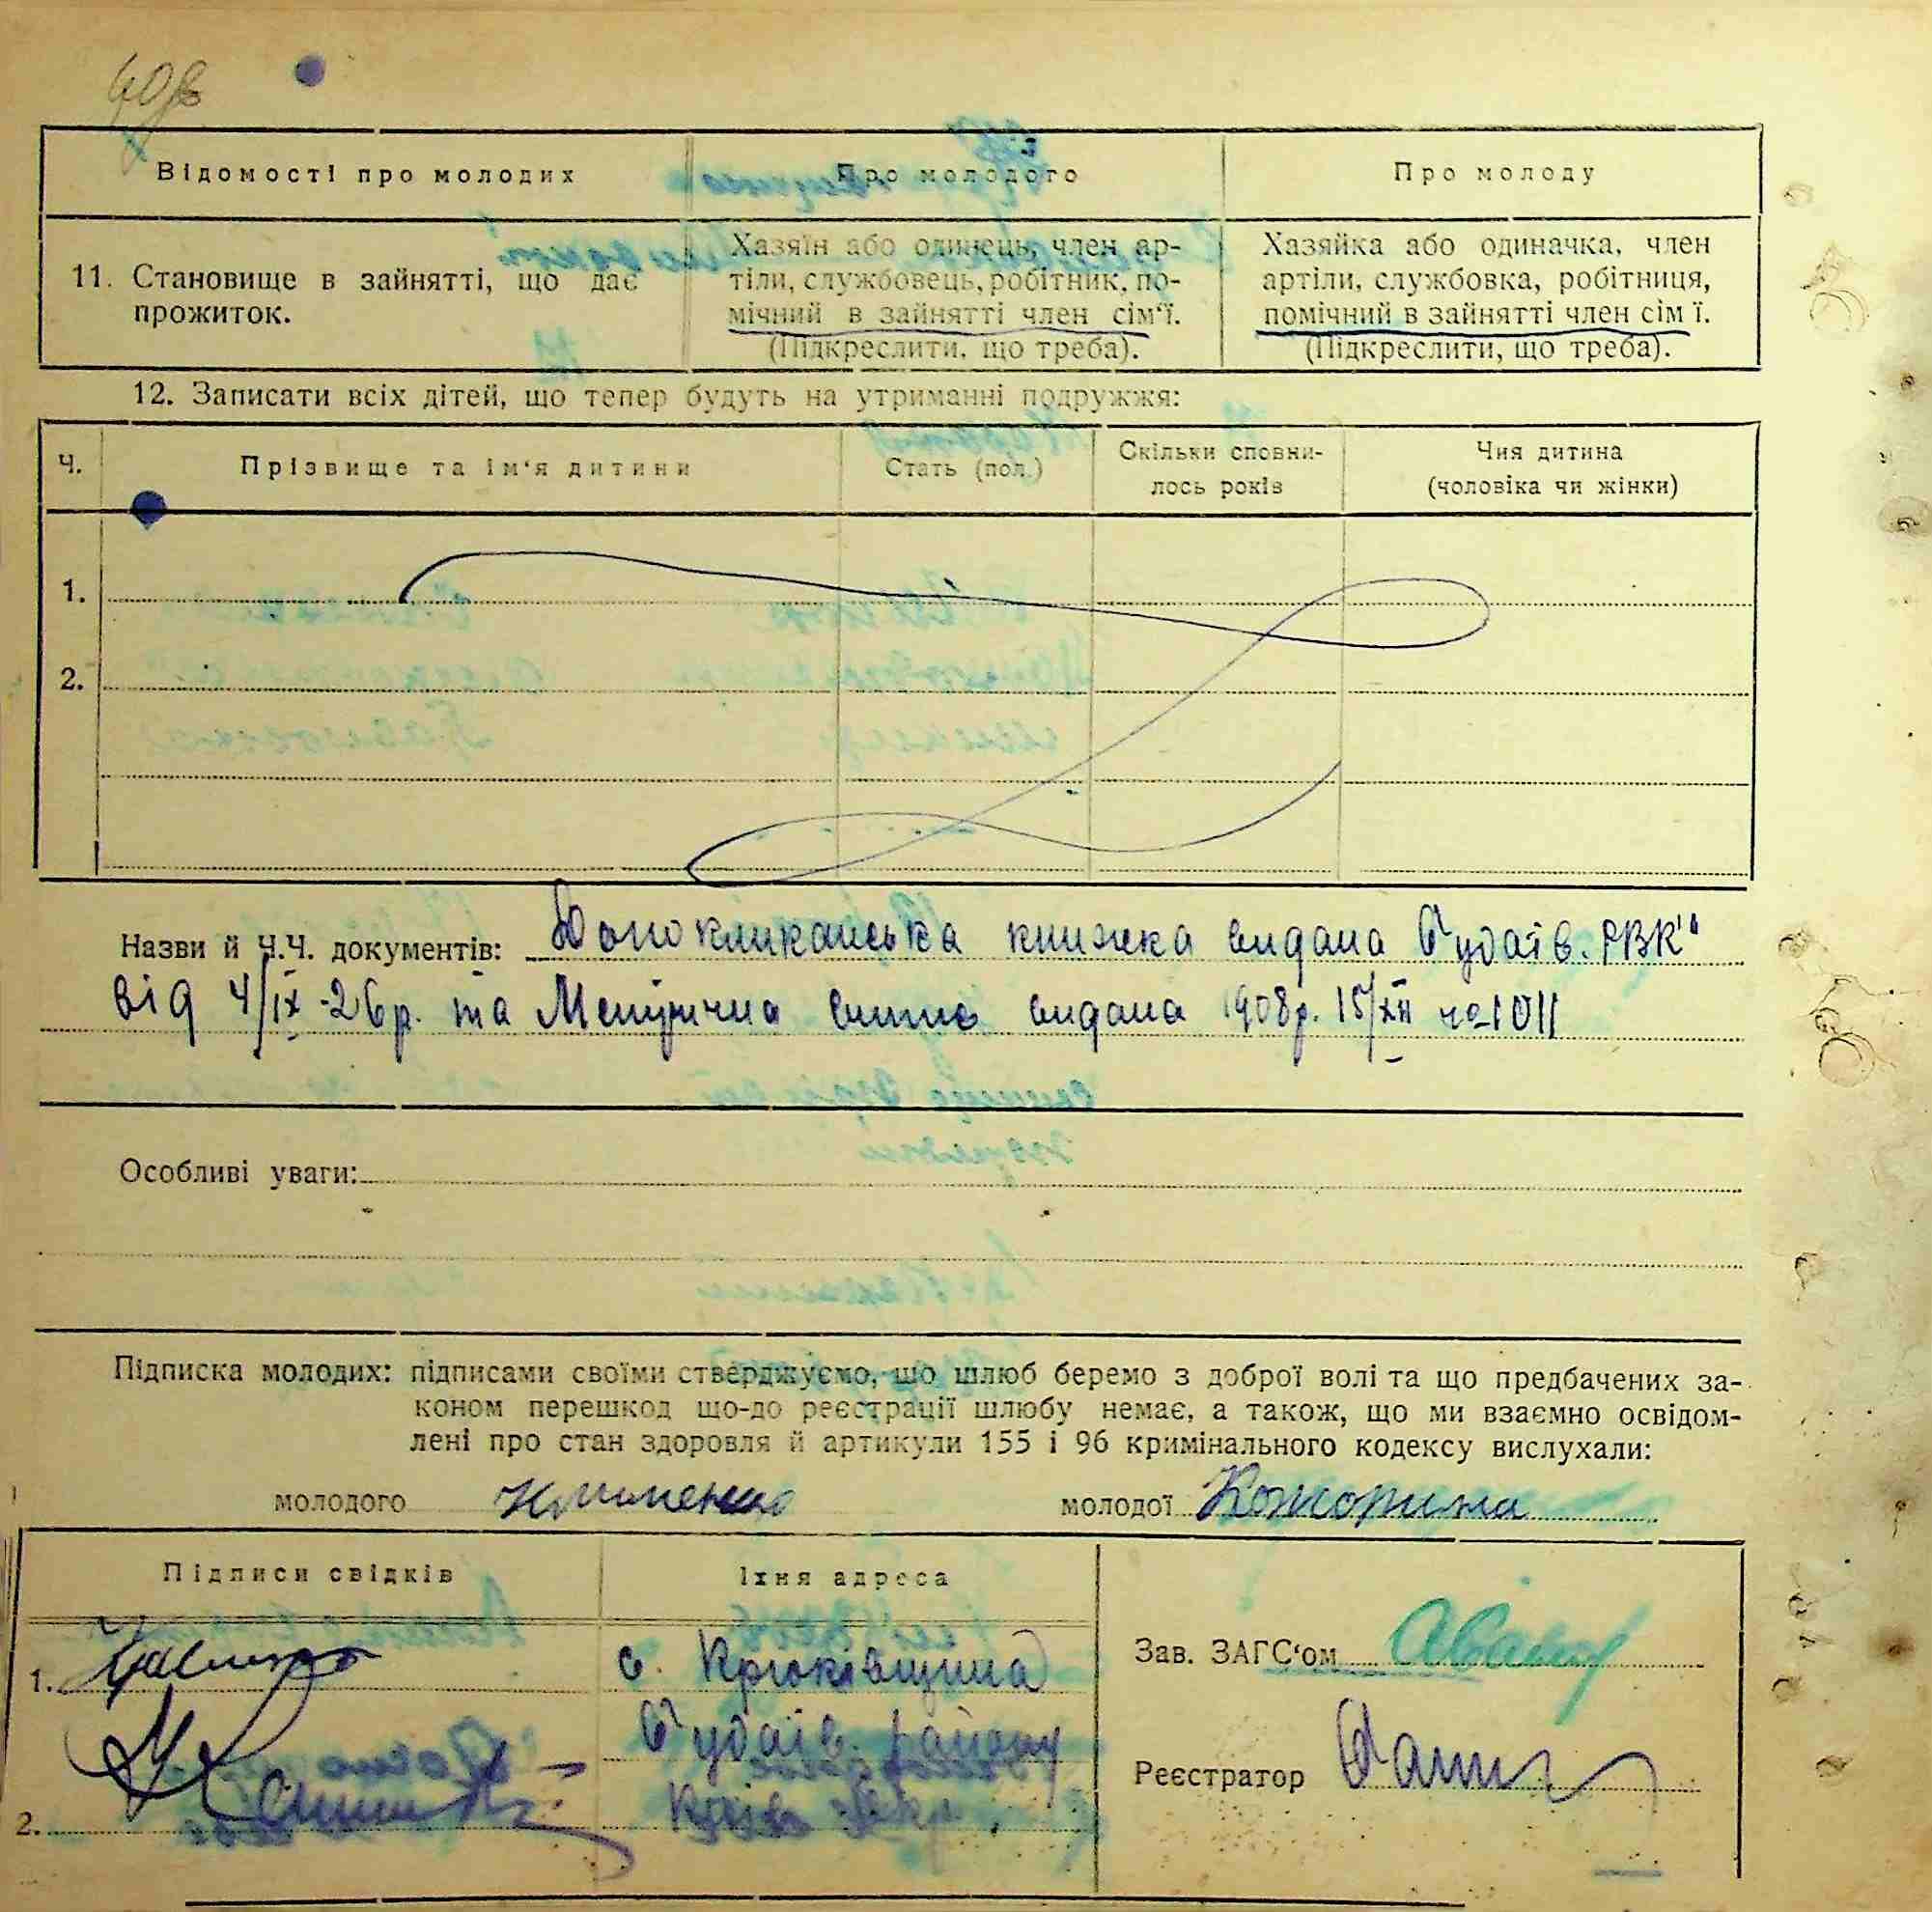 Відомості про молодих
Про молодого
Про молоду
11. Становище в зайнятті, що дає
прожиток.
Хазяїн або одинець, член ар-
тіли, службовець, робітник, по-
мічний в зайнятті член сім'ї.
(Підкреслити, що треба).
Хазяйка або одиначка, член
артіли, службовка, робітниця,
помічний в зайнятті член сім ї.
(Підкреслити, що треба).
12. Записати всіх дітей, що тепер будуть на утриманні подружжя:
Ч.
Прізвище та ім'я дитини
Стать (пол.)
Скільки сповни-
лось років
Чия дитина
(чоловіка чи жінки)
1.
2.
Назви й Ч.Ч. документів: книжка видана Будаїв. РВК"
від 4/ІХ-26р. та Метрична видана 1908р. 15/XII № 1011
Особливі уваги:
Підписка молодих: підписами своїми стверджуємо, що шлюб беремо з доброї волі та що предбачених за-
коном перешкод що-до реєстрації шлюбу немає, а також, що ми взаємно освідом-
лені про стан здоровля й артикули 155 і 96 кримінального кодексу вислухали:
молодого Клименко молодої
Підписи свідків
Їхня адреса
1.
с. Крюківщина
Будаїв. району
2.
Київ. Окр.
Зав. ЗАГС'ом
Реєстратор